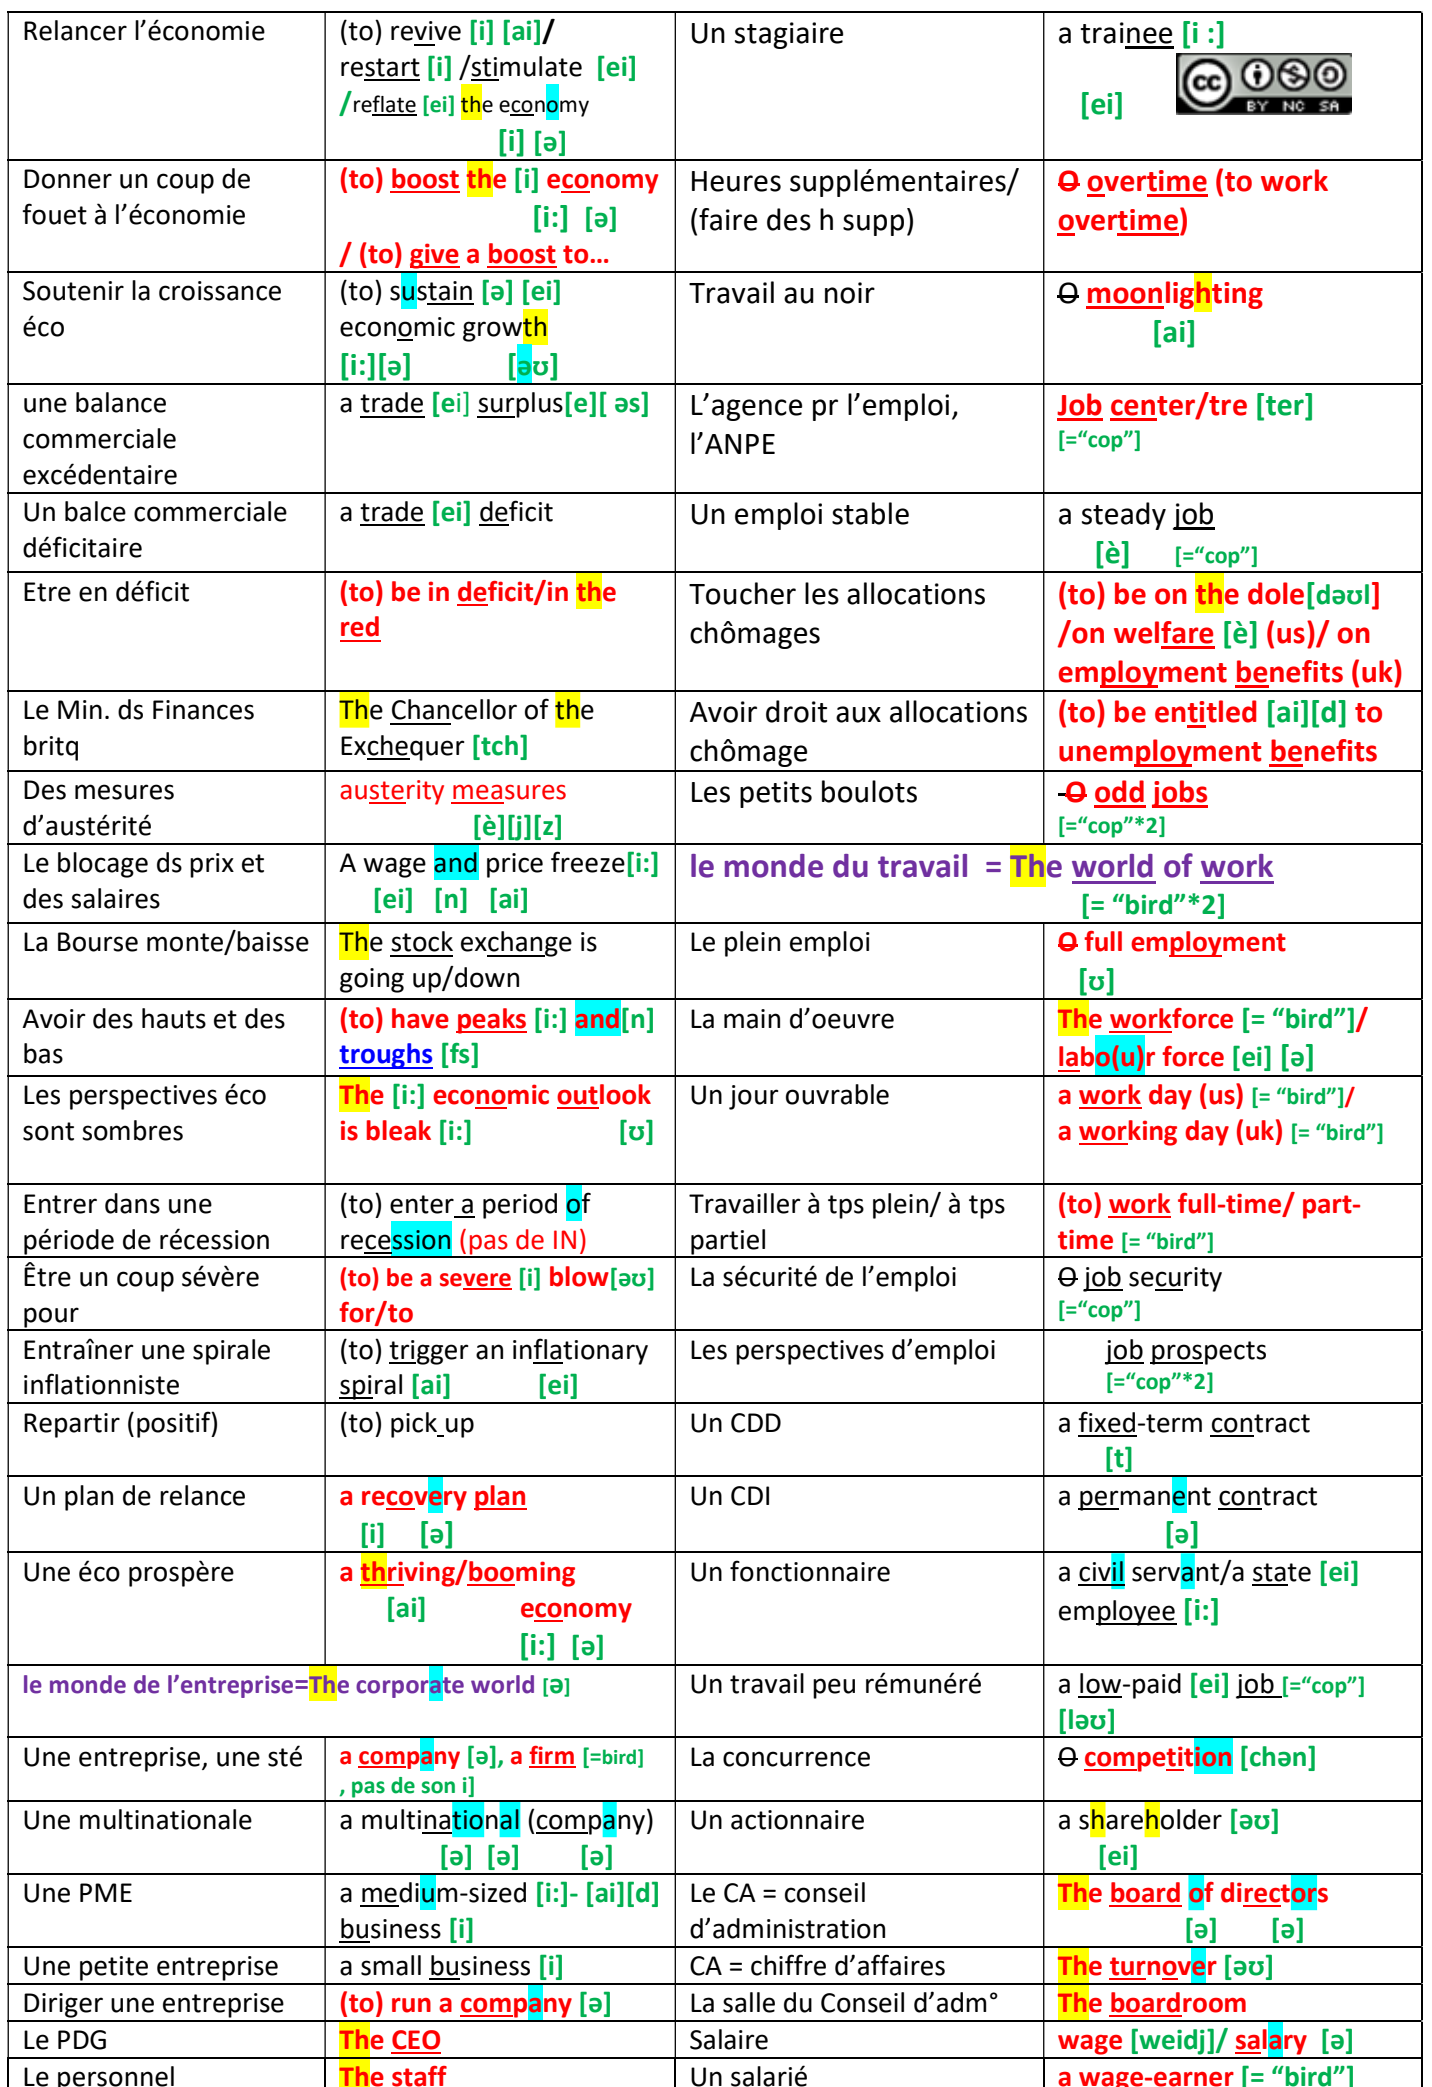 Relancer l’économie
(to) revive [i] [ai]/
restart [i] /stimulate [ei]
/reflate [ei] the economy
[i] [ə]
Un stagiaire
a trainee [i :]
[ei]
cc
BY NC SA
Donner un coup de
fouet à l’économie
(to) boost the [i] economy
[i:] [ə]
/ (to) give a boost to…
Heures supplémentaires/
(faire des h supp)
O overtime (to work
overtime)
Soutenir la croissance
éco
(to) sustain [ə] [ei]
economic growth
[i:][ə] [əʊ]
Travail au noir
O moonlighting
[ai]
une balance
commerciale
excédentaire
a trade [ei] surplus[e][ əs]
L’agence pr l’emploi,
l’ANPE
Job center/tre [ter]
[=“cop”]
Un balce commerciale
déficitaire
a trade [ei] deficit
Un emploi stable
a steady job
[è] [=“cop”]
Etre en déficit
(to) be in deficit/in the
red
Toucher les allocations
chômages
(to) be on the dole[dəʊl]
/on welfare [è] (us)/ on
employment benefits (uk)
Le Min. ds Finances
britq
The Chancellor of the
Exchequer [tch]
Avoir droit aux allocations
chômage
(to) be entitled [ai][d] to
unemployment benefits
Des mesures
d’austérité
austerity measures
[è][j][z]
Les petits boulots
-O odd jobs
[=“cop”*2]
Le blocage ds prix et
des salaires
A wage and price freeze[i:]
[ei] [n] [ai]
le monde du travail = The world of work
[= “bird”*2]
La Bourse monte/baisse
The stock exchange is
going up/down
Le plein emploi
O full employment
[ʊ]
Avoir des hauts et des
bas
(to) have peaks [i:] and[n]
troughs [fs]
La main d'oeuvre
The workforce [= “bird”]/
labo(u)r force [ei] [ə]
Les perspectives éco
sont sombres
The [i:] economic outlook
is bleak [i:] [ʊ]
Un jour ouvrable
a work day (us) [= “bird”]/
a working day (uk) [= “bird”]
Entrer dans une
période de récession
(to) enter a period of
recession (pas de IN)
Travailler à tps plein/ à tps
partiel
(to) work full-time/ part-
time [= “bird”]
Être un coup sévère
pour
(to) be a severe [i] blow[əʊ]
for/to
La sécurité de l’emploi
O job security
[=“cop”]
Entraîner une spirale
inflationniste
(to) trigger an inflationary
spiral [ai] [ei]
Les perspectives d’emploi
job prospects
[=“cop”*2]
Repartir (positif)
(to) pick up
Un CDD
a fixed-term contract
[t]
Un plan de relance
a recovery plan
[i] [ə]
Un CDI
a permanent contract
[ə]
Une éco prospère
a thriving/booming
[ai] economy
[i:] [ə]
Un fonctionnaire
a civil servant/a state [ei]
employee [i:]
le monde de l’entreprise=The corporate world [ə]
Un travail peu rémunéré
a low-paid [ei] job [=“cop”]
[ləʊ]
Une entreprise, une sté
a company [ə], a firm [=bird]
, pas de son i]
La concurrence
O competition [chən]
Une multinationale
a multinational (company)
[ə] [ə] [ə]
Un actionnaire
a shareholder [əʊ]
[ei]
Une PME
a medium-sized [i:]- [ai][d]
business [i]
Le CA = conseil
d’administration
The board of directors
[ə] [ə]
Une petite entreprise
a small business [i]
CA = chiffre d’affaires
The turnover [əʊ]
Diriger une entreprise
(to) run a company [ə]
La salle du Conseil d’adm°
The boardroom
Le PDG
The CEO
Salaire
wage [weidj]/ salary [ə]
Le personnel
The staff
Un salarié
a wage-earner [= “bird”]